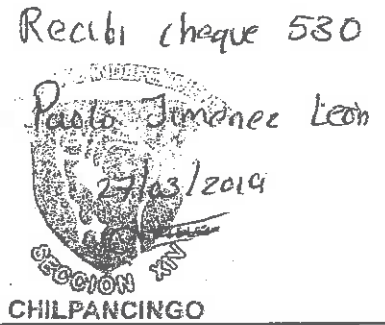 Recibi cheque 530
Paolo Jimenez León
27/03/2019
SECCIÓN XIV
CHILPANCINGO